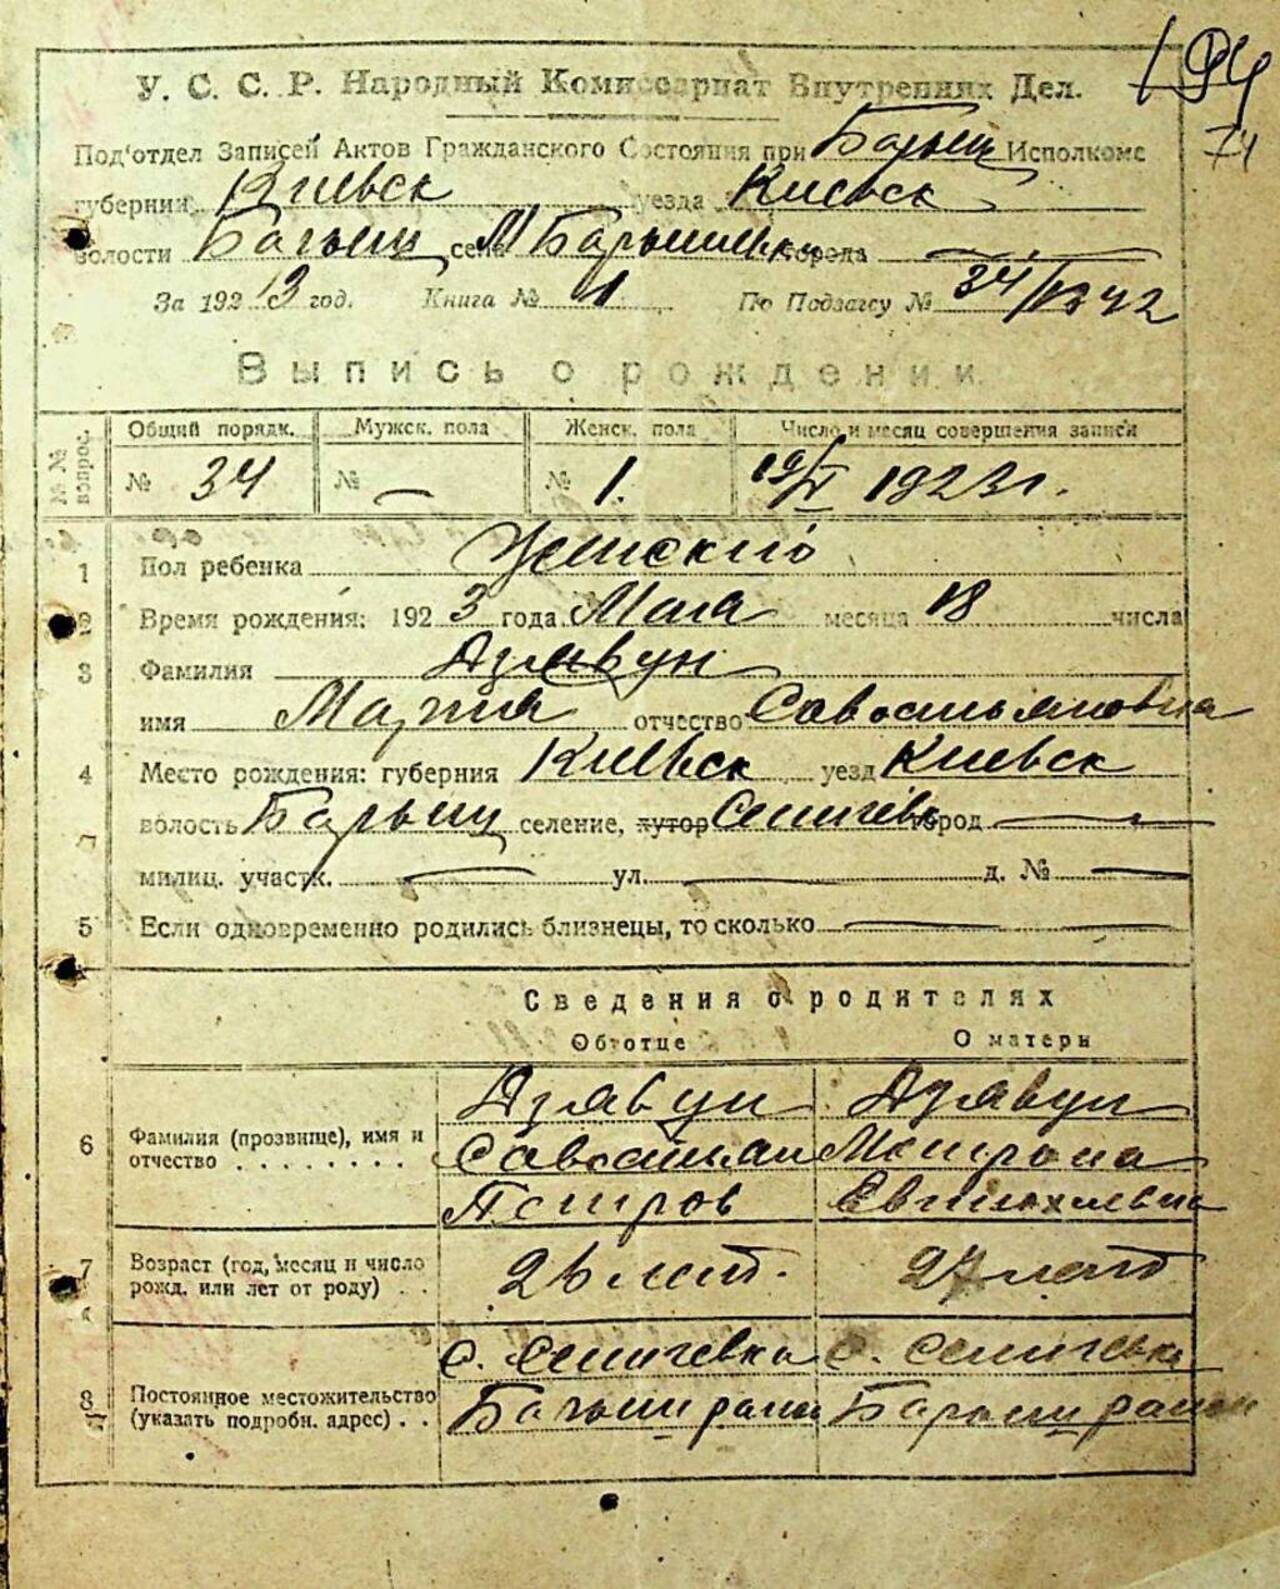 194
74
У. С. С. Р. Народный Комиссариат Внутренних Дел.
Под'отдел Записей Актов Гражданского Состояния при Барыш Исполкоме
губернии Киевск уезда Киевск
волости Барыш село М Барышевка города —
За 1923 год. Книга № 1 По Подзагсу № 34/
Выпись о рождении
№№ вопрос. Общий порядк. Мужск. пола Женск. пола Число и месяц совершения записи
№ 34 № — № 1. 19/V 1923 г.
1 Пол ребенка Женский
2 Время рождения: 1923 года Мая месяца 18 числа
3 Фамилия Дзявун
имя Мария отчество Савостьяновна
4 Место рождения: губерния Киевск уезд Киевск
волость Барыш селение, хутор Селичевк город —
милиц. участк. — ул. — д. № —
5 Если одновременно родились близнецы, то сколько —
Сведения о родителях
Об отце О матери
Дзявун Дзявун
6 Фамилия (прозвище), имя и Савостьян Мотрона
отчество . . . . . . . . Петров Евтихиевна
7 Возраст (год, месяц и число
рожд. или лет от роду) . . 26 лет. 27 лет
с. Селичевка с. Селичевка
8 Постоянное местожительство
(указать подробн. адрес) . . Барыш район Барыш район